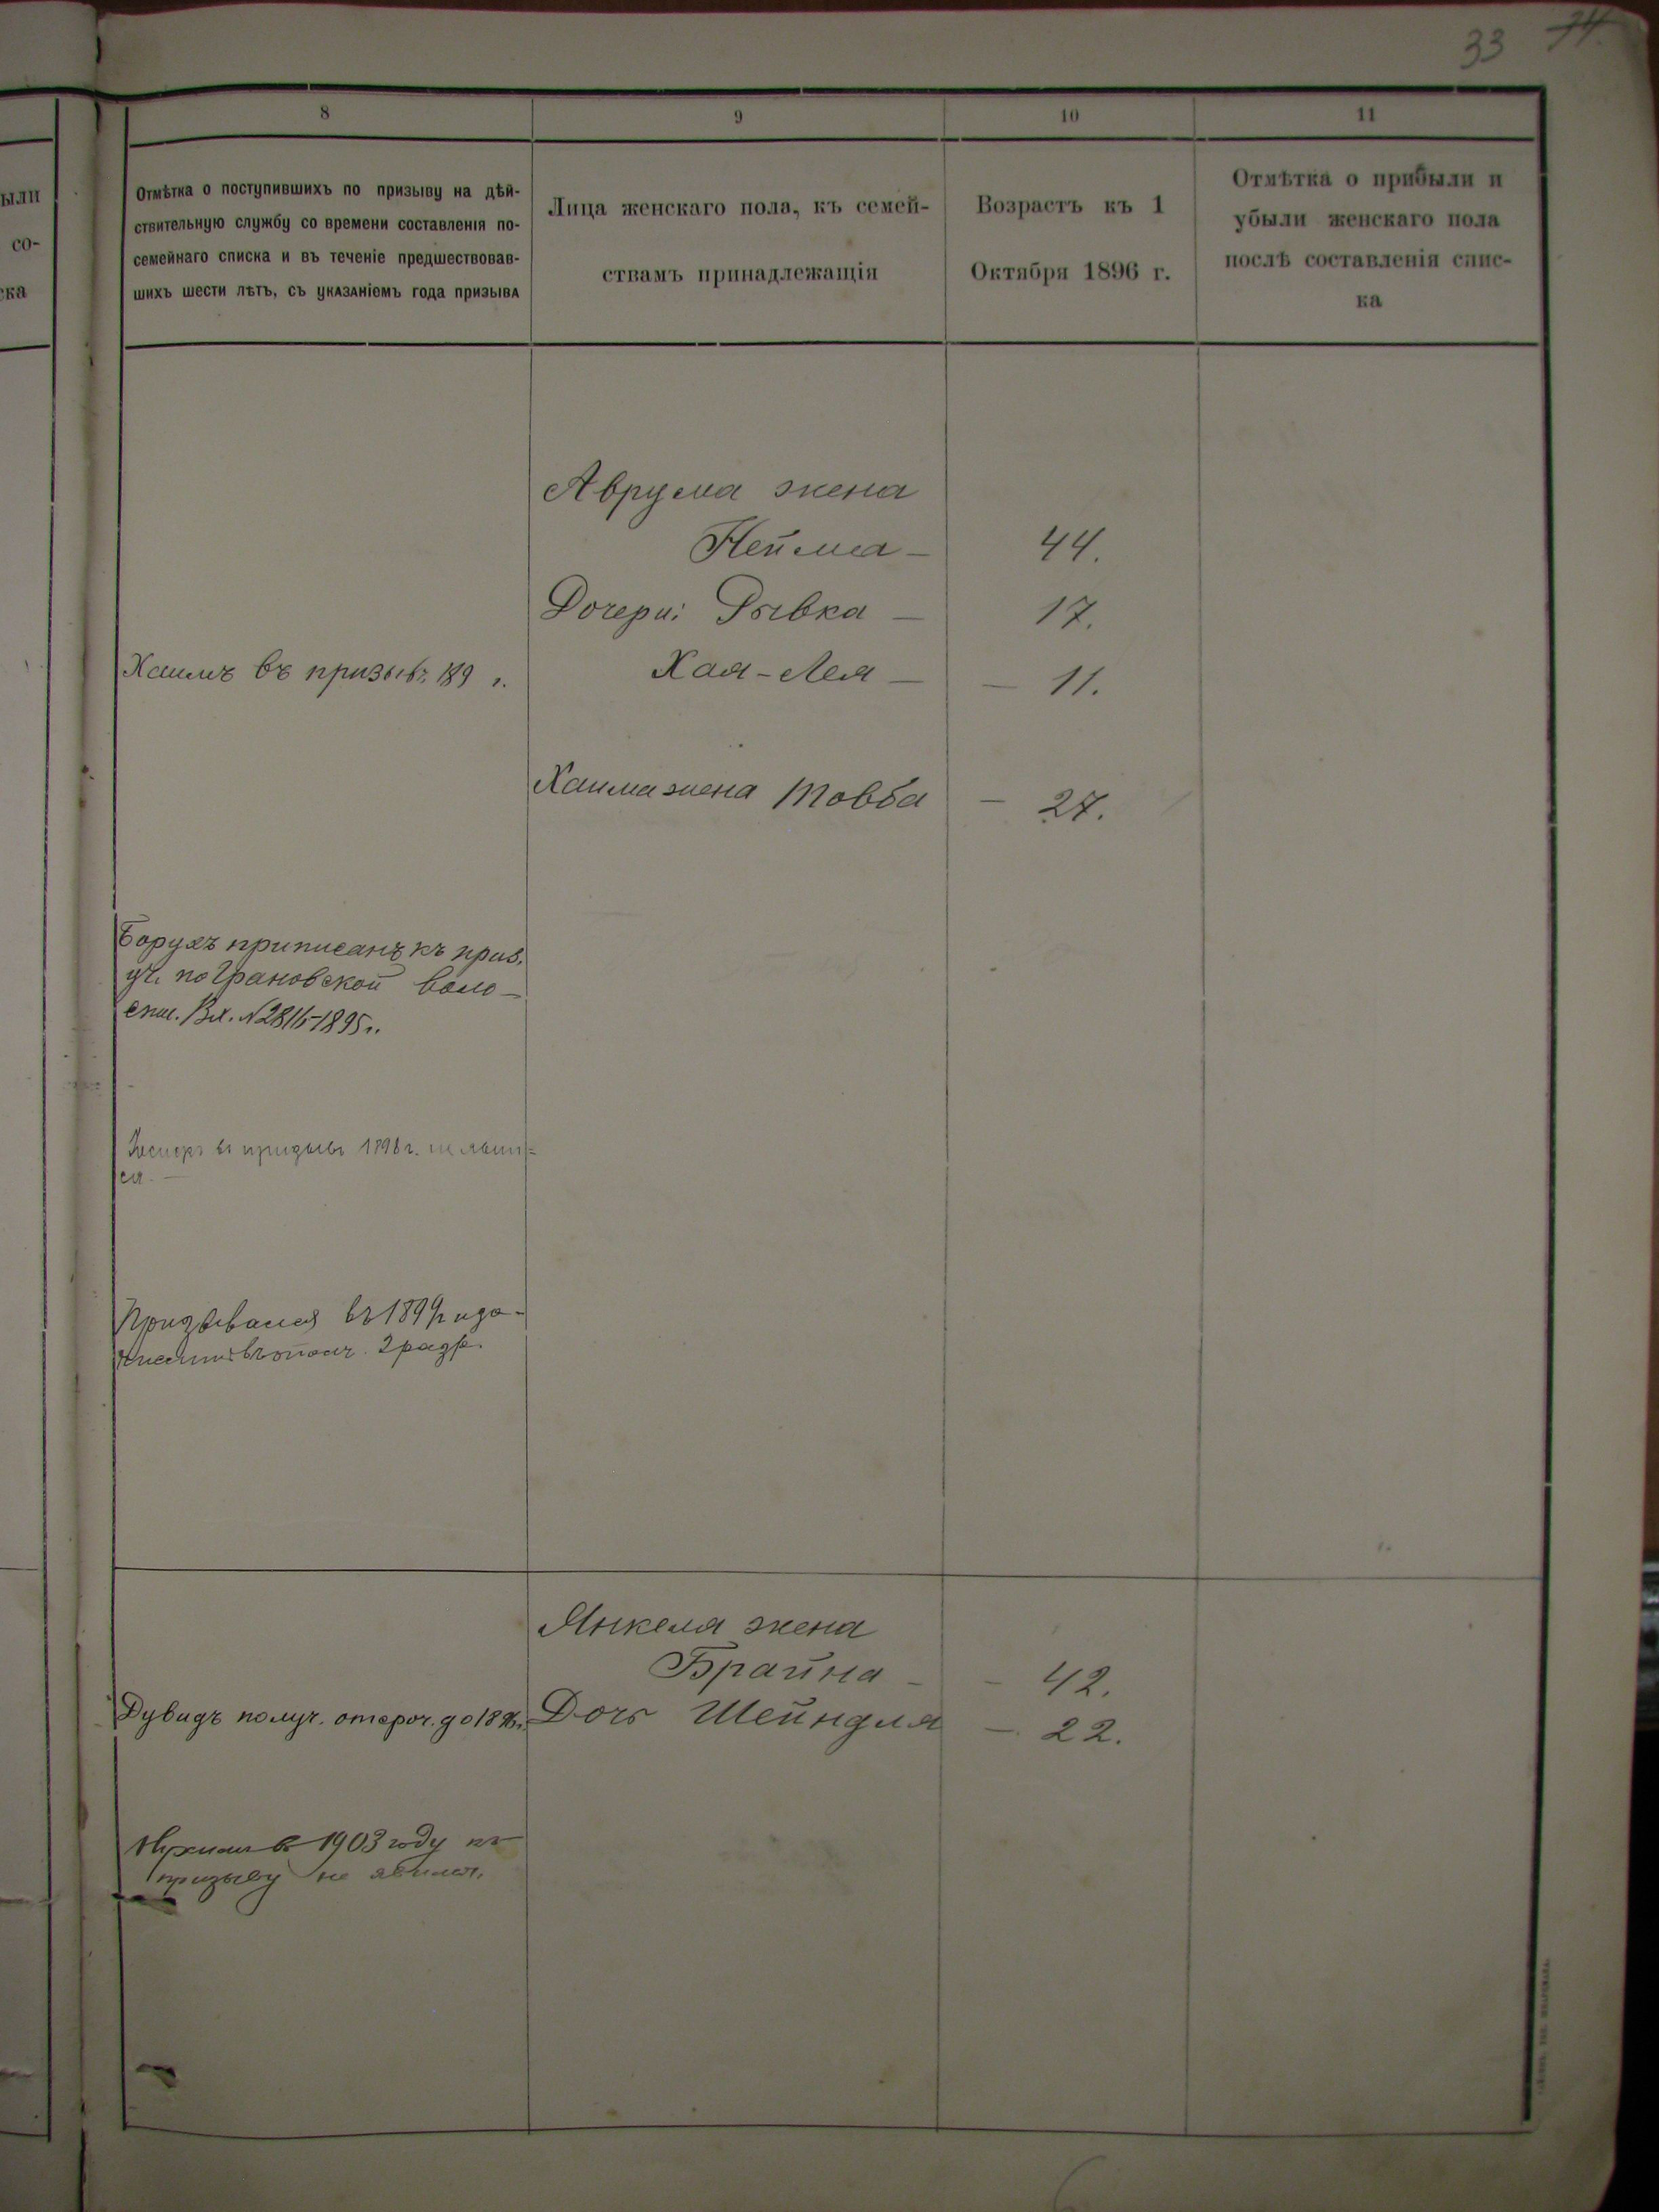 33 74.
ыли
со-
ска
8
9
10
11
Отмѣтка о поступившихъ по призыву на дѣй-
ствительную службу со времени составленія по-
семейнаго списка и въ теченіе предшествовав-
шихъ шести лѣтъ, съ указаніемъ года призыва
Лица женскаго пола, къ семей-
ствамъ принадлежащія
Возрастъ къ 1
Октября 1896 г.
Отмѣтка о прибыли и
убыли женскаго пола
послѣ составленія спис-
ка
Аврума жена
Нейма - 44.
Дочери: Рывка - 17.
Хаимъ въ призывъ 189 г.
Хая-Лея - - 11.
Хаима жена Товба - 27.
Борухъ приписанъ къ приз.
уч. по Грановской воло-
сти. Вх. №2815-1895 г.
въ призывъ 1898 г. не явил-
ся. -
Призывался въ 1899 г и за-
въ ополч. 2 разр.
Янкеля жена
Брайна - - 42.
Дувидъ получ. отсроч. до 18 г.
Дочь Шейндля - 22.
въ 1903 году къ
призыву не явился.